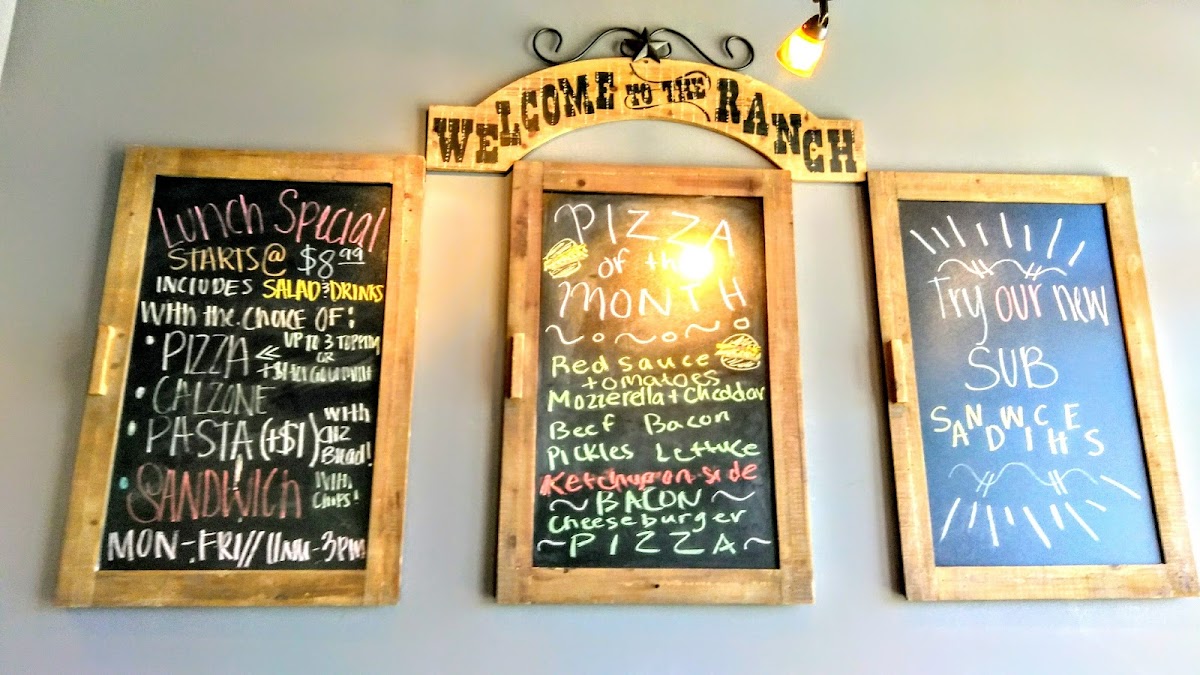 WELCOME TO THE RANCH
Lunch Special
STARTS @ $8.99
INCLUDES SALAD & DRINKS
WITH the CHOICE OF:
• PIZZA << UP TO 3 TOPPING
OR
• CALZONE
• PASTA (+$1) WITH CHZ Bread!
• SANDWICH WITH CHIPS!
MON-FRI// 11AM-3PM
PIZZA
of the
MONTH
Red sauce
tomatoes
Mozzerella + Cheddar
Beef Bacon
Pickles Lettuce
Ketchup on side
~ BACON ~
Cheeseburger
~ PIZZA ~
Try our new
SUB
SANDWICHES